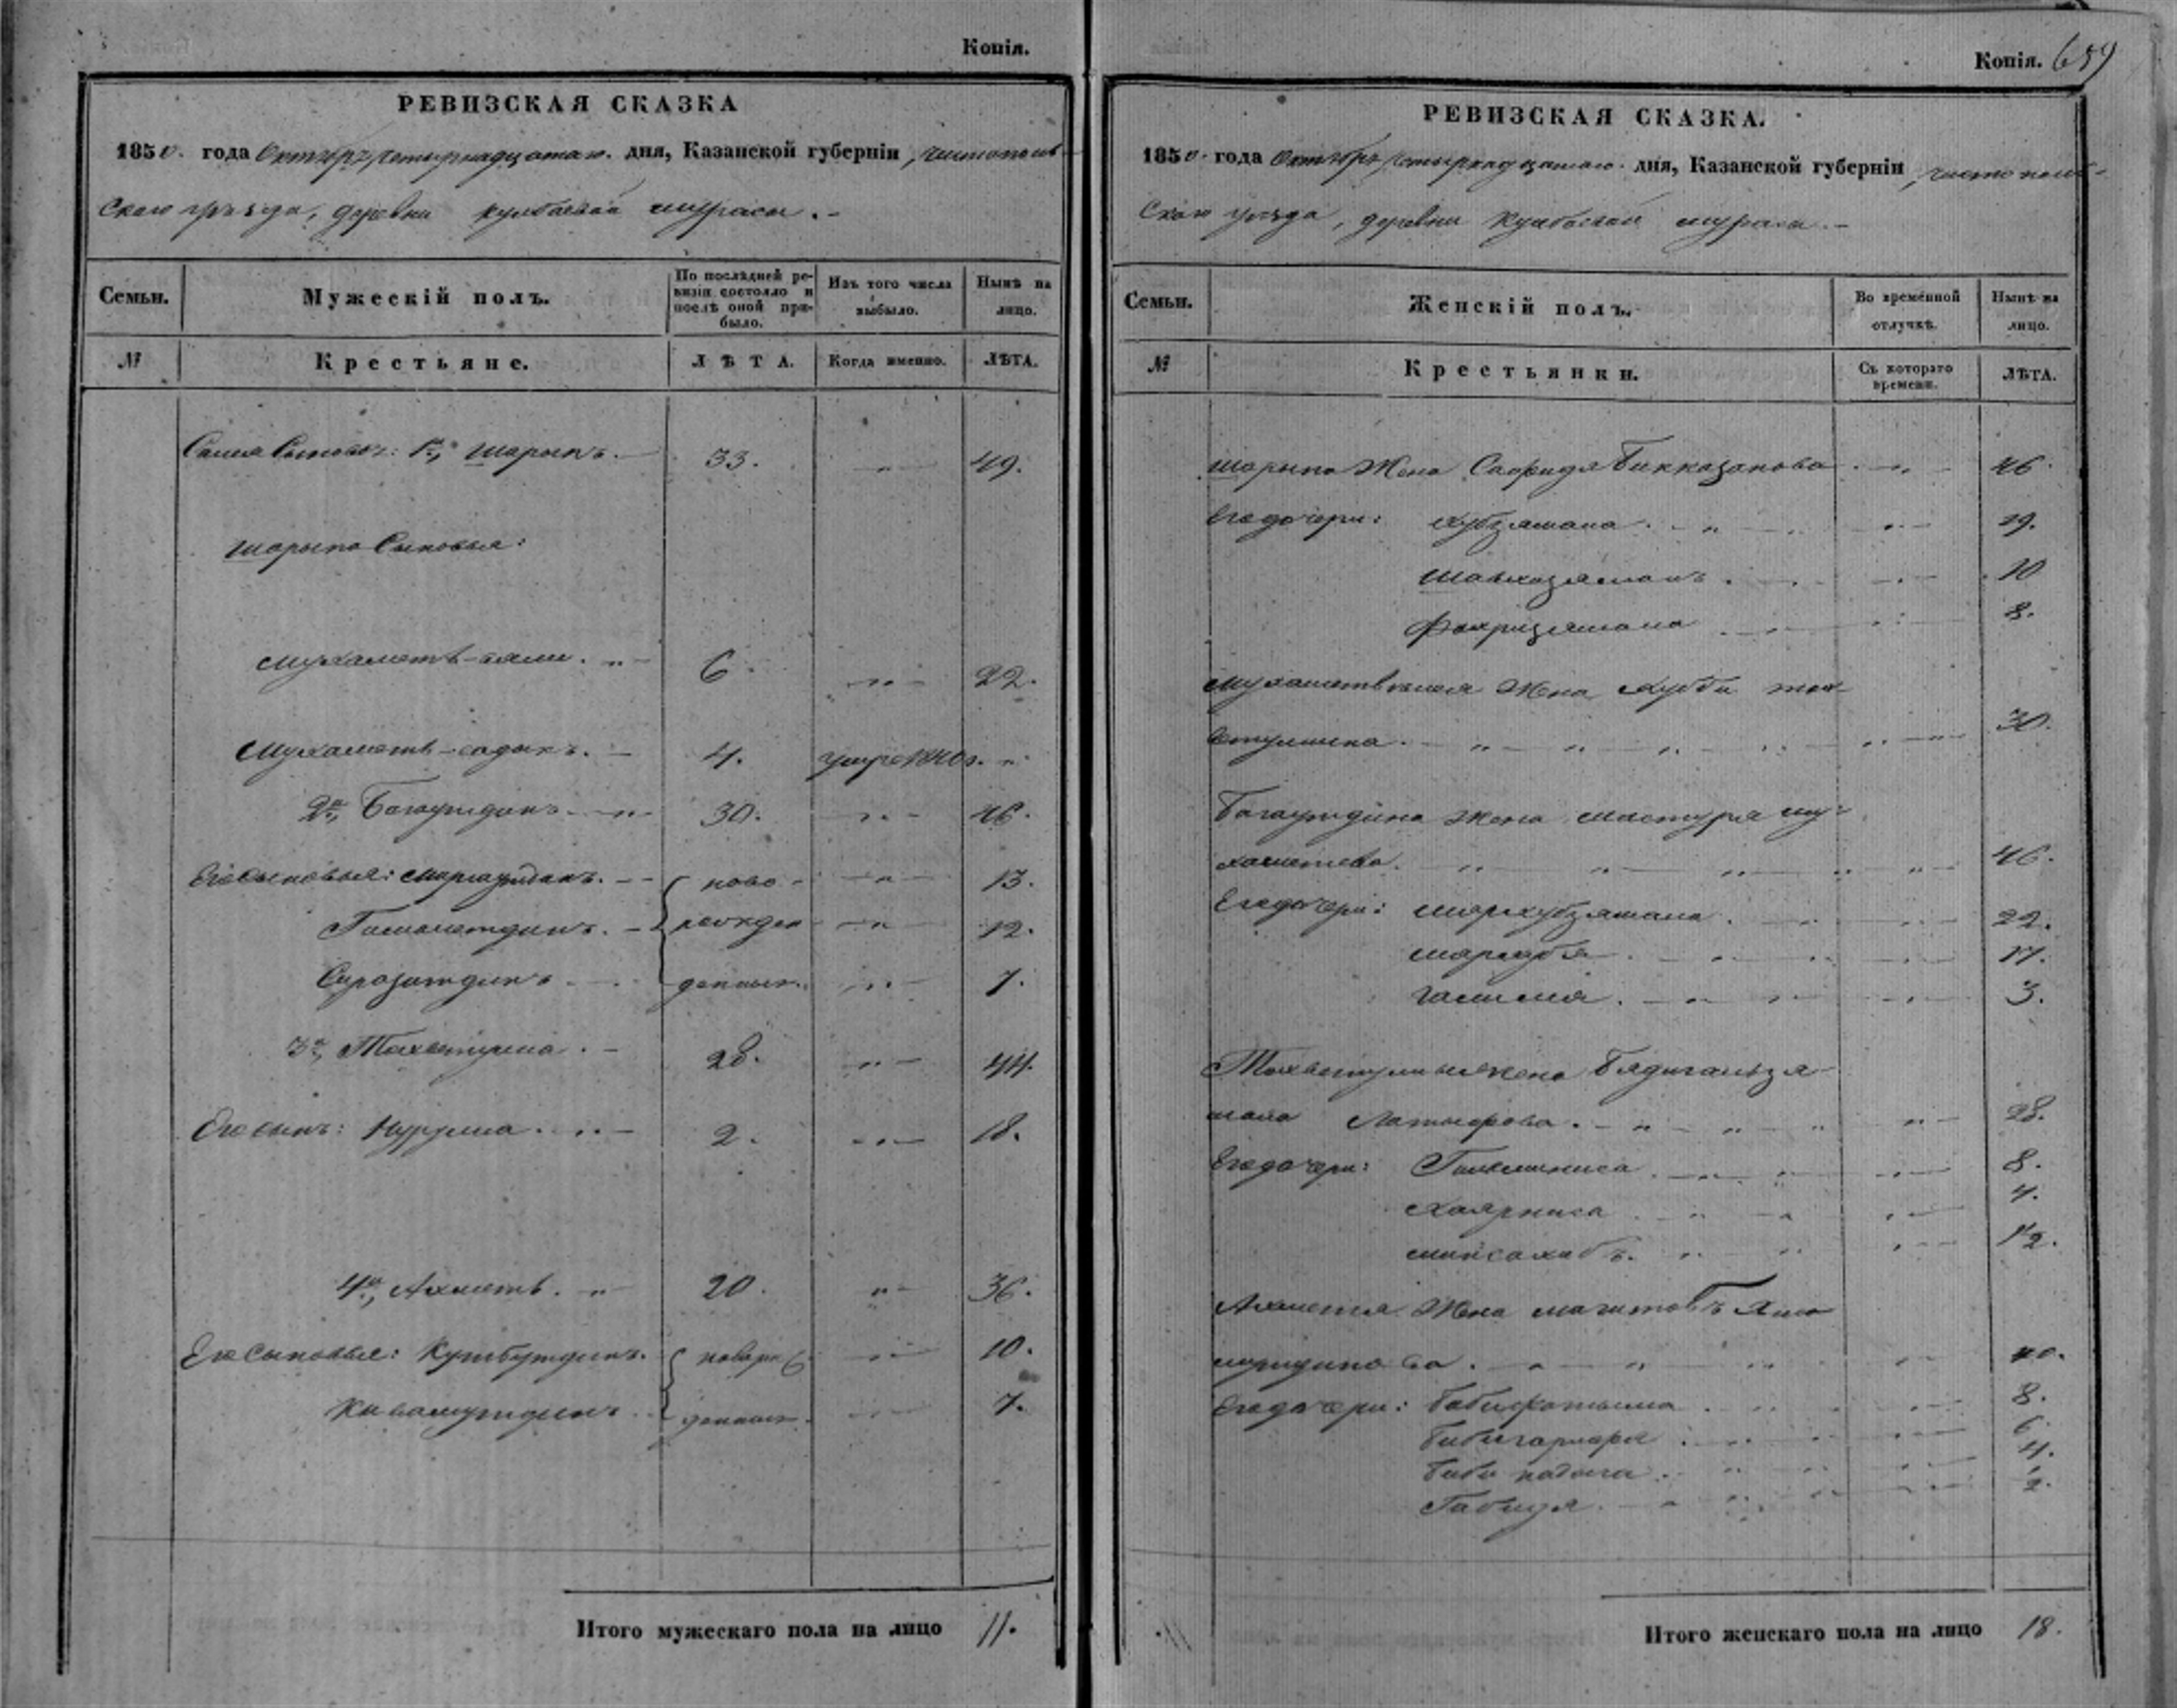 Копія.
РЕВИЗСКАЯ СКАЗКА
1850. года Октября четырнадцатаго. дня, Казанской губерніи, Чистополь-
скаго уѣзда, деревни Кулбаевой Мурасы. -
Семьи.
Мужескій полъ.
По послѣдней ре-
визіи состояло и
послѣ оной при-
было.
Изъ того числа
выбыло.
Нынѣ на
лицо.
№
Крестьяне.
ЛѢТА.
Когда именно.
ЛѢТА.
1й, Шарыпъ. 33. 49.
Шарыпа Сыновья:
Мухаметь-вали. 6. 22.
Мухаметь-садыкъ. 4. умре 1840 г.
2й, Багаутдинъ. 30. 46.
Его сыновья: 13.
ново-
рожден
Гималетдинъ. 12.
Сиразитдинъ. 7.
3й, Тохватулла. 28. 44.
Его сынъ: Нурулла. 2. 18.
4й, Ахметь. 20. 36.
Его сыновья: Кутбутдинъ. новорож 10.
денные. 7.
Итого мужескаго пола на лицо 11.
Копія. 659
РЕВИЗСКАЯ СКАЗКА.
1850. года Октября четырнадцатаго. дня, Казанской губерніи, Чистополь-
скаго уѣзда, деревни Кулбаевой Мурасы. -
Семьи.
Женскій полъ.
Во временной
отлучкѣ.
Нынѣ на
лицо.
№
Крестьянки.
Съ котораго
времени.
ЛѢТА.
Шарыпа Жена Сафидя Бикказанова 46.
Его дочери: Хубзямала. 19.
10
Фахризямала 8.
Жена Хубби Тох-
ватуллина. 30.
Багаутдина жена Мастуря Му-
хаметева. 46.
Его дочери: Шархубзямала. 22.
17.
Галима. 3.
Тохватуллы жена Бядигальзя-
мала Латыфова. 28.
Его дочери: 8.
Хаярниса 4.
Минсахибъ. 1/2.
Ахметя Жена
40.
Его дочери: Бибифатыма 8.
6.
4.
Габидя. 2.
Итого женскаго пола на лицо 18.